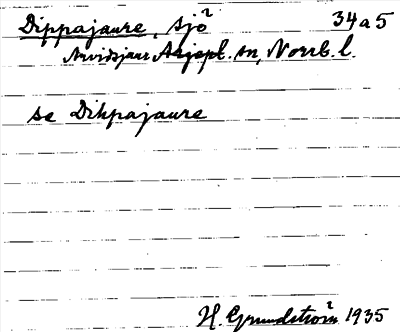 Dippajaure, sjö 34a5
Arvidsjaur Arjepl. sn, Norrb. l.
se Dihpajaure
H. Grundström 1935